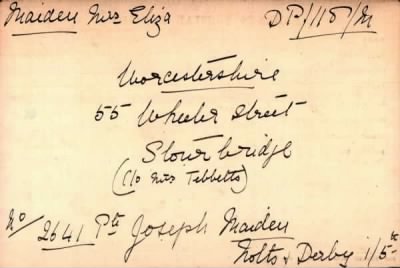 Maiden Mrs Eliza DP/118/M
Worcestershire
55 Wheeler Street
Stourbridge
(C/o Mrs Tebbetts)
No/2641 Pte Joseph Maiden
Notts & Derby 1/5th